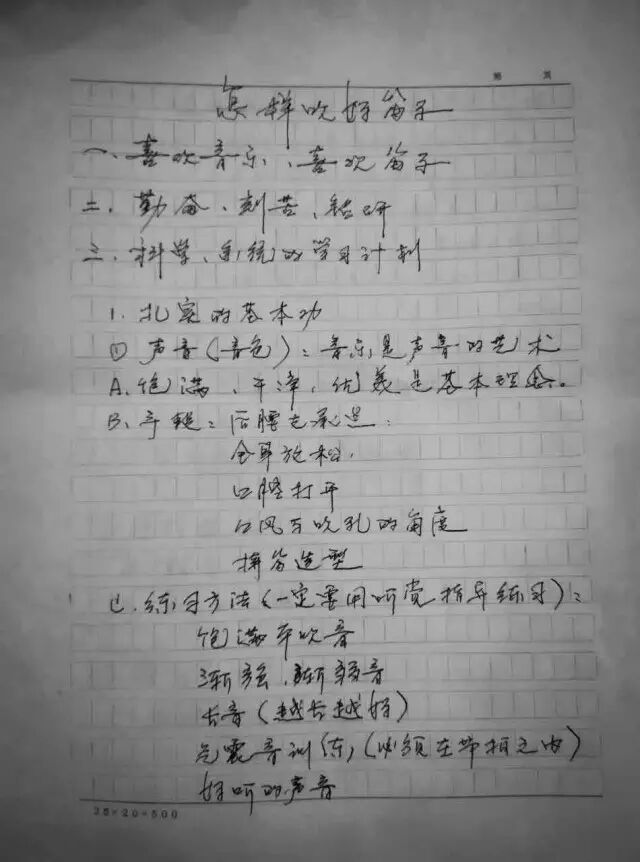 第 页
怎样吹好笛子
一、喜欢音乐、喜欢笛子
二、勤奋、刻苦、钻研
三、科学、系统的学习计划
1、扎实的基本功
① 声音(音色):音乐是声音的艺术
A、饱满、干净、优美是基本理念。
B、前提:后腰支起:
全身放松,
口腔打开
口风与吹孔的角度
持笛造型
C、练习方法(一定要用听觉指导练习):
饱满平吹音
渐强、渐弱音
长音(越长越好)
气震音训练,(必须在节拍之内)
好听的声音
25×20=500